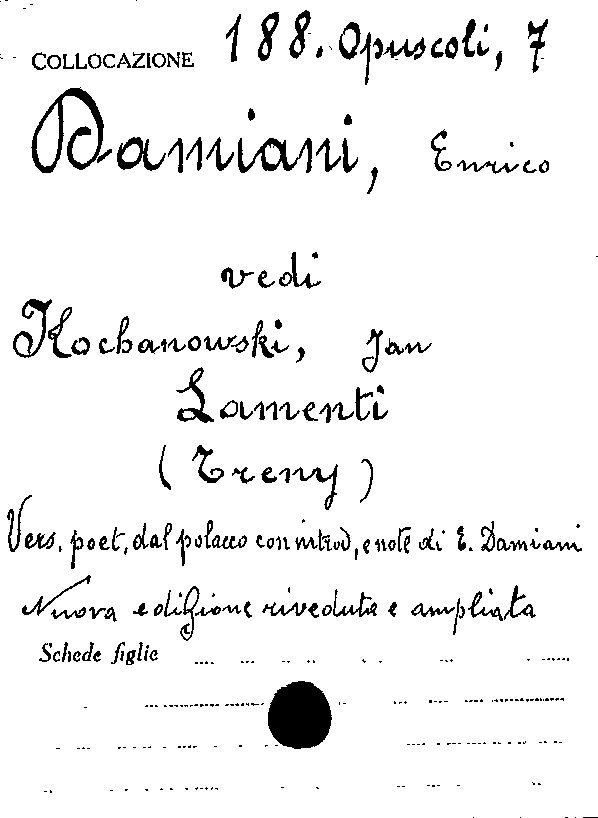 COLLOCAZIONE 188. Opuscoli, 7
Damiani, Enrico
vedi
Kochanowski, Jan
Lamenti
(Treny)
Vers. poet, dal polacco con introd, e note di E. Damiani
Nuova edizione riveduta e ampliata
Schede figlie